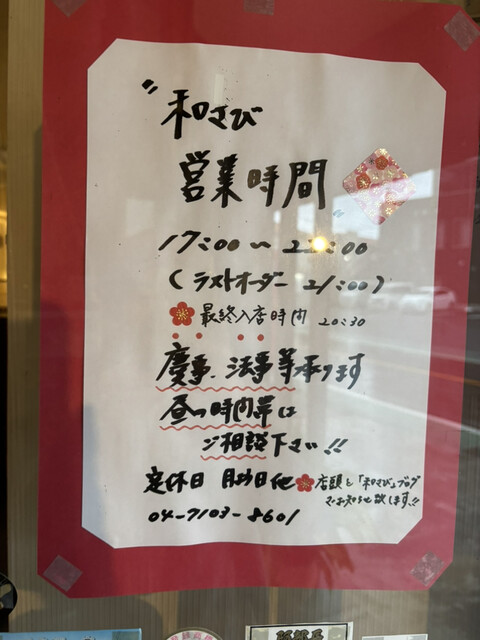 〃和さび
営業時間〃
17:00〜22:00
(ラストオーダー 21:00)
最終入店時間 20:30
慶事、法事等承ります
昼の時間帯は
ご相談下さい!!
定休日 月曜日他
店頭と「和さび」ブログ
でお知らせ致します!!
04-7103-8601